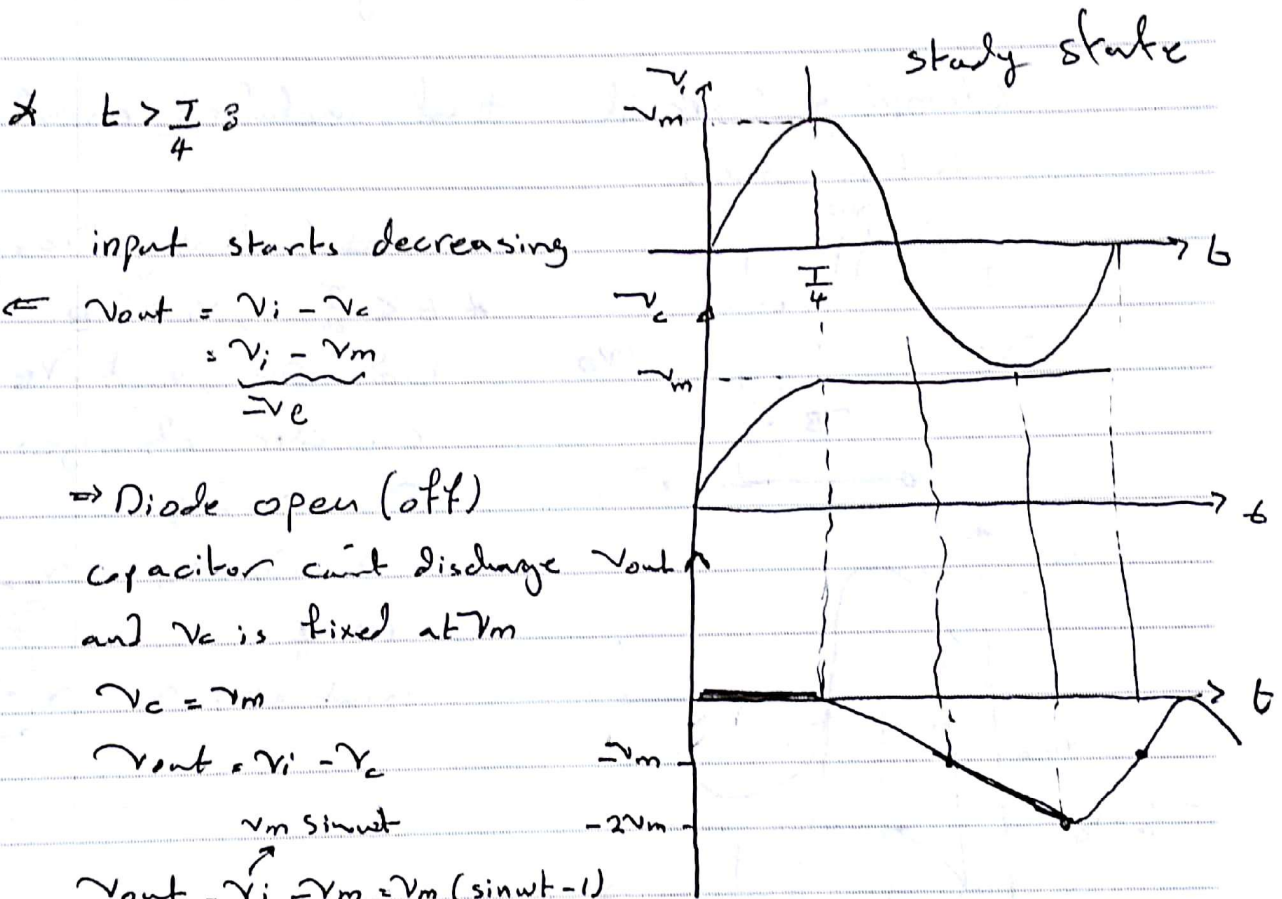 * t > T/4 :
input starts decreasing
⇐ Vout = Vi - Vc
= Vi - Vm
-ve
⇒ Diode open (off)
capacitor can't discharge
and Vc is fixed at Vm
Vc = Vm
Vout = Vi - Vc
Vm sinwt
Vout = Vi - Vm = Vm (sinwt - 1)
study state
Vi
Vm
T/4
t
Vc
Vm
t
Vout
t
-Vm
-2Vm